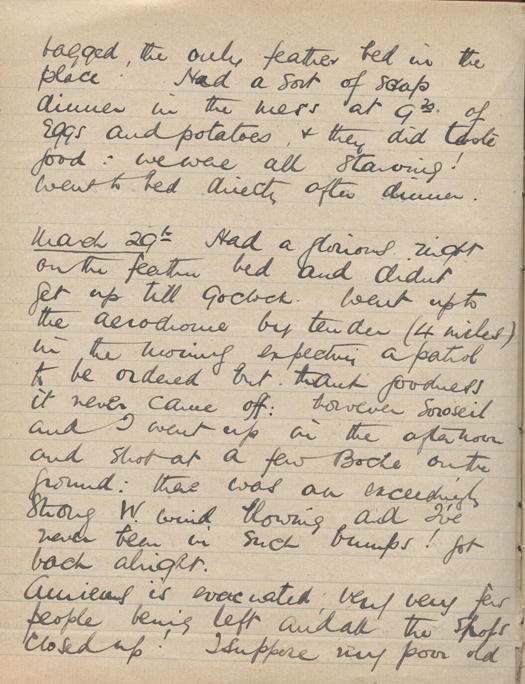 bagged, the only feather bed in the
place! Had a sort of scrap
dinner in the mess at 9.30 of
Eggs and potatoes, & they did taste
good: we were all starving!
Went to bed directly after dinner.
March 29th Had a glorious night
on the feather bed and didnt
get up till 9oclock. Went up to
the aerodrome by tender (4 miles)
in the morning expecting a patrol
to be ordered but thank goodness
it never came off: however
and I went up in the afternoon
and shot at a few Boche on the
ground: there was an exceedingly
strong W. wind blowing and I've
never been in such bumps! Got
back alright.
Amiens is evacuated, very very few
people being left and all the shops
closed up! I suppose my poor old